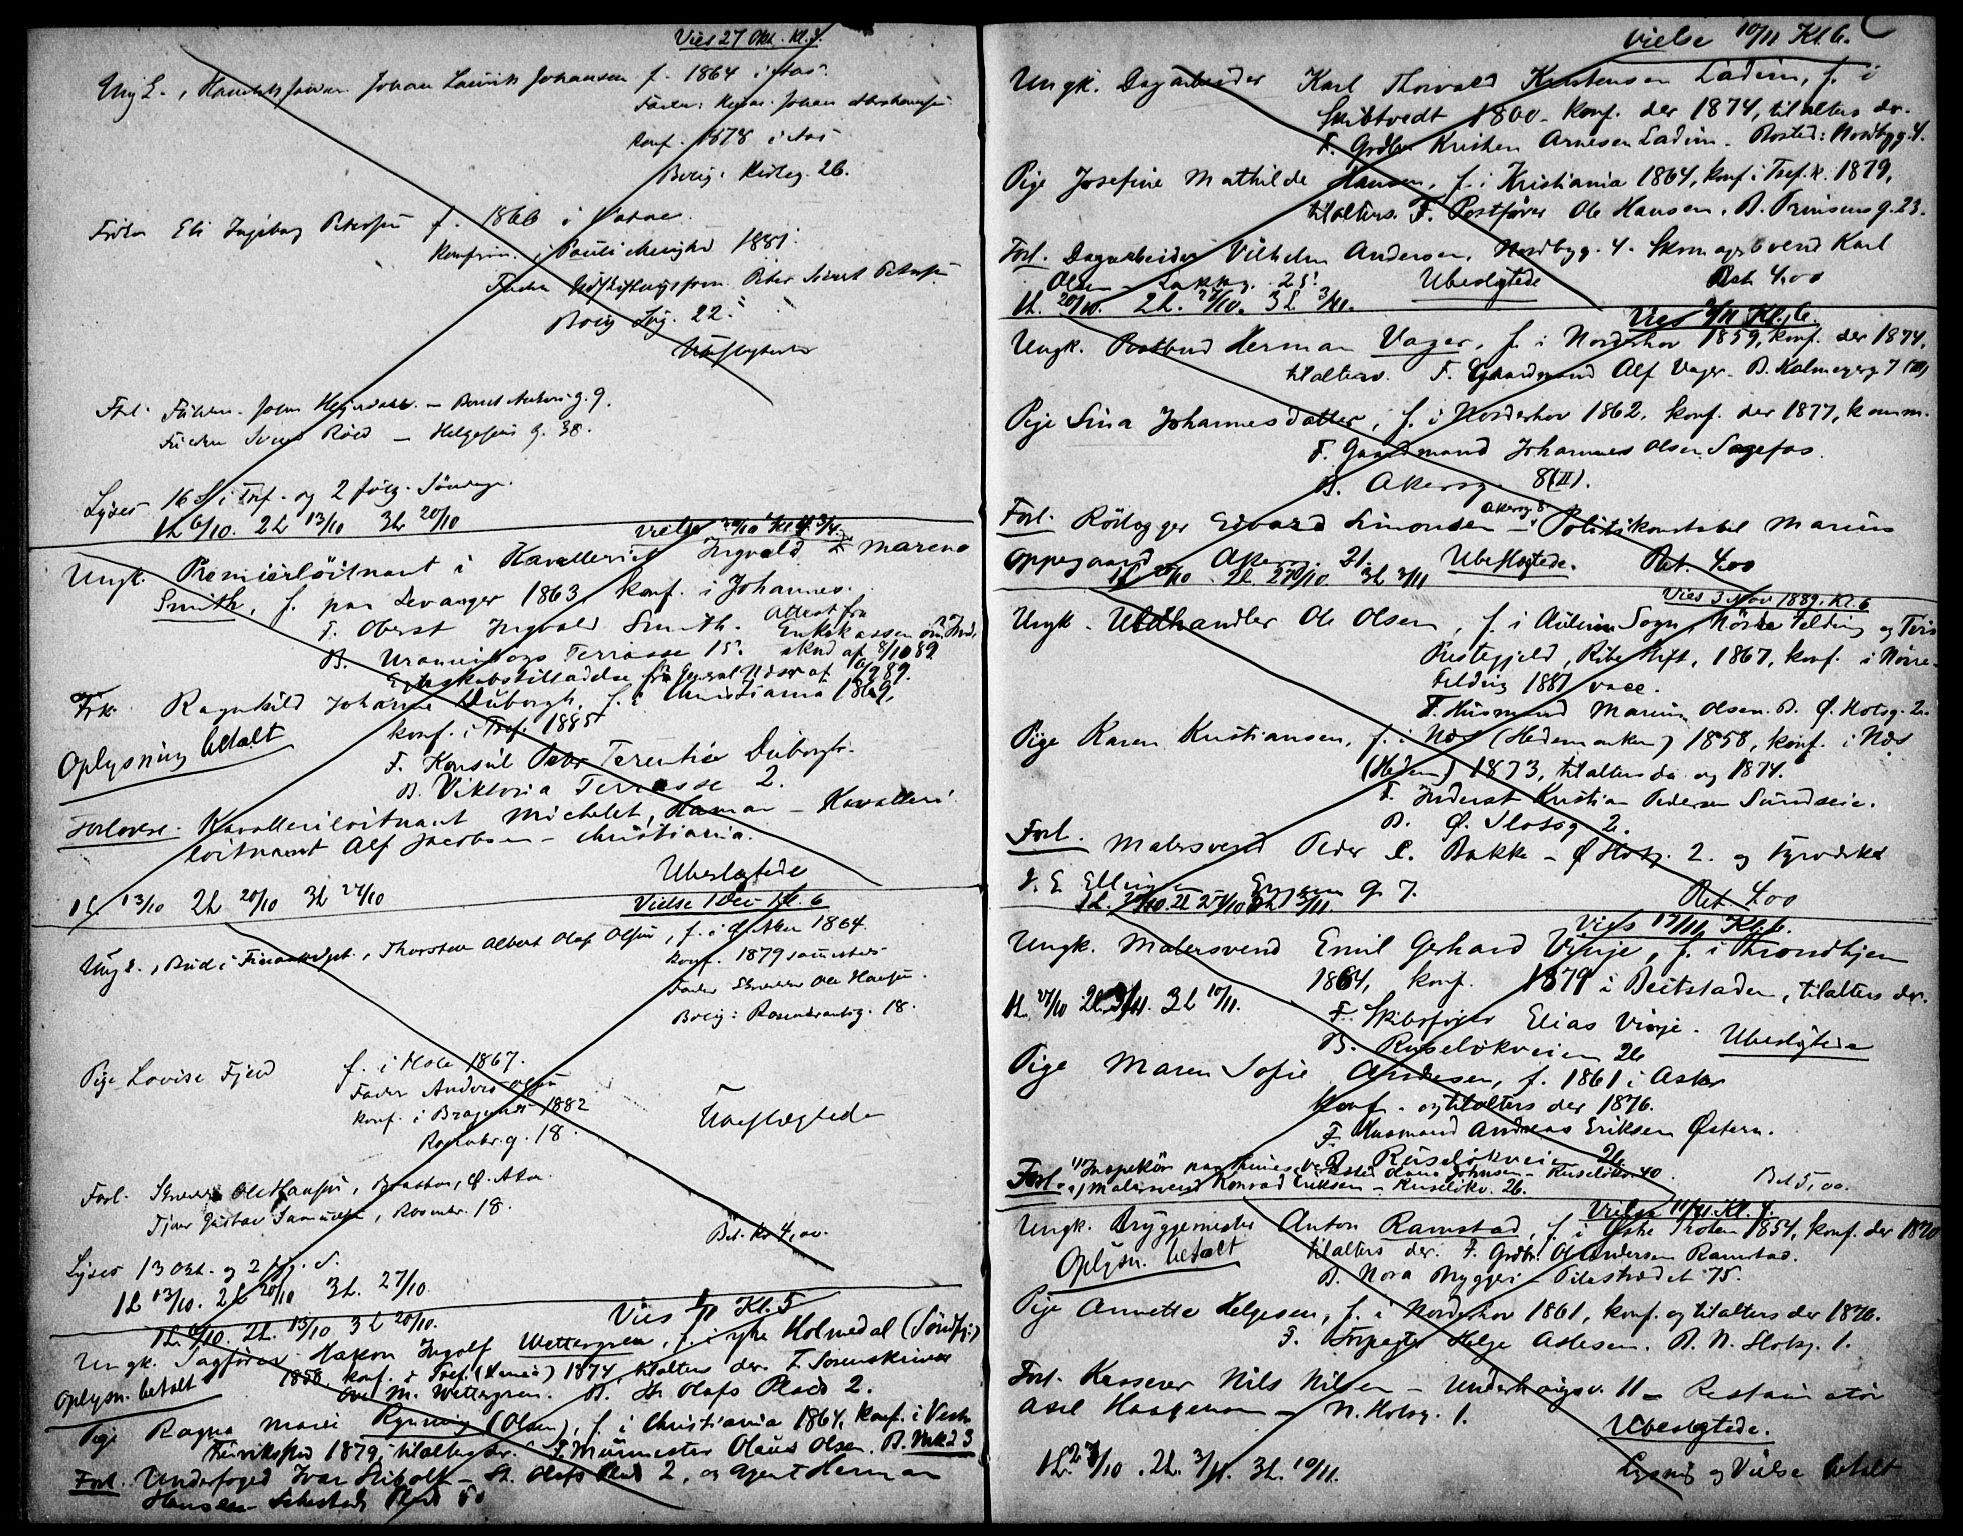 Vies 27 Okt. Kl. 7.
Ungk., Johan Laurits Johansen f. 1864 i Aas
Fader: Johan
Konf. 1878 i Aas
Bolig: 26.
Frøken Eli Ingeborg Petersen f. 1866 i
Konfirm. i Pauli Menighed 1881.
Fader Peter Petersen
Bolig 22.
Ubeslægtede
Forl. g. 9.
Helgesens g. 38.
Lyses i Tref. og 2 følg. Søndage.
1L 6/10. 2L 13/10 3L 20/10
Vielse Kl.
Ungk. Premierløitnant i Kavalleriet Ingvald Marena
Smith, f. paa Levanger 1863, konf. i Johannes.
F. Oberst Ingvald Smith. Attest fra
B. Uranienborgs Terrasse 15. Enkekassen om Ind-
skud af 8/10 89
Egteskabstilladelse fra af 89.
Frk. Ragnhild Johanne Duborgh, f. i Christiania 1869,
konf. i Tref. 1885
Oplysning betalt
F. Konsul Peter Terentius Duborgh.
B. Viktoria Terrasse 2.
Forlovere. Kavalleriløitnant Michelet, Hamar – Kavalleri
løitnant Alf Jacobsen – Christiania.
Ubeslægtede
1L. 13/10 2L 20/10 3L 27/10
Vielse 1 Dec Kl. 6
Ungk., Bud i Finantsdept., Thorsten Albert Olaf Olsen, f. i Ø. Aker 1864.
Konf. 1879 sammesteds
Fader Ole Hansen.
Bolig: Rosenkrantzg. 18.
Pige Lovise Fjeld f. i Hole 1867.
Fader Anders Olsen
konf. i Bragernes 1882
Rosenkr. g. 18.
Ubeslægtede
Forl. Ole Hansen, Ø. Aker
Gustav Samuelsen, Rosenkr. 18.
Bet. Kr 4,00.
Lyses 13 Okt. og 2 følg. S.
1L 13/10. 2L 20/10 3L. 27/10
Vies Kl. 5
1L. 6/10. 2L. 13/10 3L 20/10.
Ungk. Sagfører Hakon Ingolf Wettergren, f. i ytre Holmedal (Søndfj.)
1858, konf. i Tref. 1874 tilalters der. F. Sorenskriver
Oplysn. betalt
M. Wettergren. B. St. Olafs Plads 2.
Pige Ragna Marie Rynning (Olsen), f. i Christiania 1864, konf. i Vestre
Fredrikstad 1879, tilalters der. F. Murmester Olaus Olsen. B.
Forl. Underfoged Ivar – St. Olafs Plads 2, og Agent Herman
Hansen – Sehesteds Plads
Vielse 10/11 Kl. 6.
Ungk. Dagarbeider Karl Thorvald Kristensen Ladim, f. i
Skibtvedt 1860. konf. der 1874, tilalters do.
F. Grdbr. Kristen Arnesen Ladim. Bosted: Nordbyg. 4.
Pige Josefine Mathilde Hansen, f. i Kristiania 1864, konf i Tref. k. 1879,
tilalters. F. Postfører Ole Hansen. B. Prinsens g. 23.
Forl. Dagarbeider Vilhelm Andersen, Nordbyg. 4. Skomagersvend Karl
Olsen – Lakkeg. 25.
Ubeslægtede Bet. 4.00
1L. 20/10. 2L. 27/10. 3L. 3/11.
Vies Kl. 6.
Ungk. Postbud Herman Vager, f. i Norderhov 1859, konf. der 1874.
tilalters. F. Gaardmand Alf Vager. B. Kalmeyerg 7 (III)
Pige Sina Johannesdatter, f. i Norderhov 1862, konf. der 1877, komm.
F. Gaardmand Johannes Olsen Sagefos.
B. Akersg. 8 (II).
Forl. Rørlægger Edvard Simonsen Akersg 8 – Politikonstabel Marius
Oppegaard Akersg. 21. Ubeslægtede. Bet. 4.00
1L 20/10 2L 27/10 3L 3/11
Vies 3 Nov 1889. Kl. 6
Ungk. Uldhandler Ole Olsen, f. i Sogn, Nørre Felding og
Prestegjeld, Ribe Stift, 1867, konf. i Nørre-
felding 1881 vacc.
F. Husmand Marius Olsen. B. Ø. Slotsg. 2.
Pige Karen Kristiansen, f. i Næs (Hedemarken) 1858, konf. i Næs
(Hedem) 1873, tilalters da og 1874.
F. Inderst Kristian Pedersen Sundseie.
B. Ø. Slotsg 2.
Forl. Malersvend Peder C. Bakke – Ø Slotsg. 2. og Fyrværker
J. E. g. 7.
1L. 20/10. 2L 27/10 3L 3/11. Bet. 4.00
Vies 17/11 Kl. 6.
Ungk. Malersvend Emil Gerhard Vinje, f. i Throndhjem
1864, konf. 1879 i Beitstaden, tilalters der.
1L 27/10 2L. 3/11. 3L 10/11.
F. Skibsfører Elias Vinje.
B. Ruseløkveien 26
Ubeslægtede
Pige Maren Sofie Andresen, f. 1861 i Asker
Konf. og tilalters der 1876.
F. Husmand Andreas Eriksen Østern.
B. Ruseløkveien 26
Forl. 1) Inspektør Olaus Johnsen – Ruseløkv. 40
2) Malersvend Konrad Eriksen – Ruseløkv. 26. Bet 5,00.
Vielse Kl. 7.
Ungk. Bryggemester Anton Ramstad, f. i Østre Thoten 1854, konf. der 1870
tilalters der. F. Grdbr. Ol. Andersen Ramstad.
Oplysn. betalt
B. Nora Bryggeri – Pilestrædet 75.
Pige Annette Helgesen, f. i Norderhov 1861, konf. og tilalters der 1876.
F. Forpagter Helge Aslesen. B. N. Slotsg. 1.
Forl. Kasserer Nils Nilsen – Underhaugsv. 11 – Restauratør
Axel – N. Slotsg. 1.
Ubeslægtede.
1L. 27/10. 2L. 3/11. 3L. 10/11. Lysning og Vielse betalt